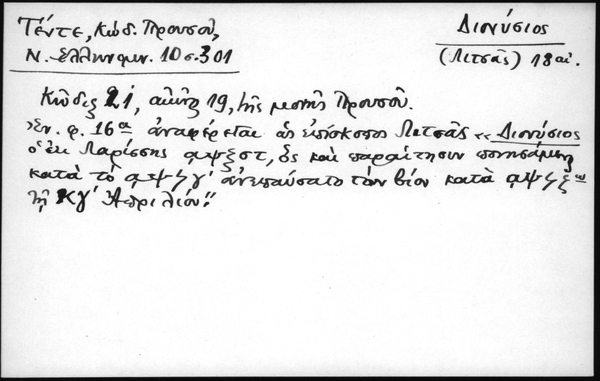 Τέντε, Κώδ. Προυσοῦ,
Ν. Ἑλληνομν. 10 σ. 301
Διονύσιος
(Λιτσᾶς) 18 αἰ.
Κῶδιξ 21, αἰῶν 19, τῆς μονῆς Προυσοῦ.
Ἐν. φ. 16α ἀναφέρεται ὡς ἐπίσκοπος Λιτσᾶς "Διονύσιος
ὁ ἐκ Λαρίσσης αψξστ, ὃς καὶ παραίτησιν ποιησάμενος
κατὰ τὸ αψϟγ' ἀνεπαύσατο τὸν βίον κατὰ
τῇ κγ' Ἀπριλίου."